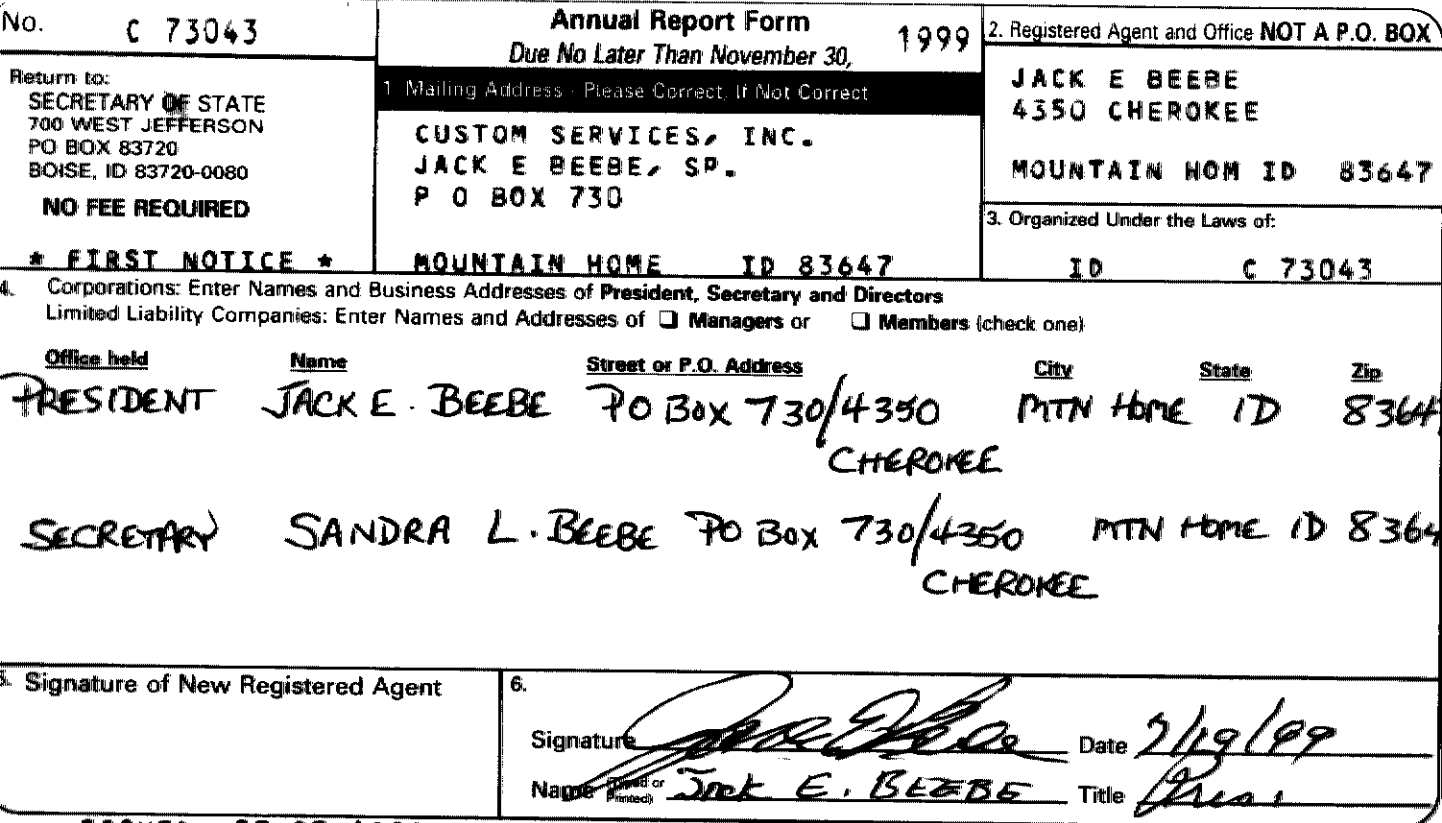 No. C 73043
Return to:
SECRETARY OF STATE
700 WEST JEFFERSON
PO BOX 83720
BOISE, ID 83720-0080
NO FEE REQUIRED
* FIRST NOTICE *
Annual Report Form 1999
Due No Later Than November 30,
1 Mailing Address - Please Correct, If Not Correct
CUSTOM SERVICES, INC.
JACK E BEEBE, SP.
P O BOX 730
MOUNTAIN HOME ID 83647
2. Registered Agent and Office NOT A P.O. BOX
JACK E BEEBE
4350 CHEROKEE
MOUNTAIN HOM ID 83647
3. Organized Under the Laws of:
ID C 73043
4. Corporations: Enter Names and Business Addresses of President, Secretary and Directors
Limited Liability Companies: Enter Names and Addresses of ❏ Managers or ❏ Members (check one)
Office held Name Street or P.O. Address City State Zip
PRESIDENT JACK E. BEEBE PO BOX 730/4350 MTN HOME ID 8364
CHEROKEE
SECRETARY SANDRA L. BEEBE PO BOX 730/4350 MTN HOME ID 8364
CHEROKEE
5. Signature of New Registered Agent
6.
Signature Date /19/99
Name (Typed or Printed) Jack E. BEEBE Title Pres.